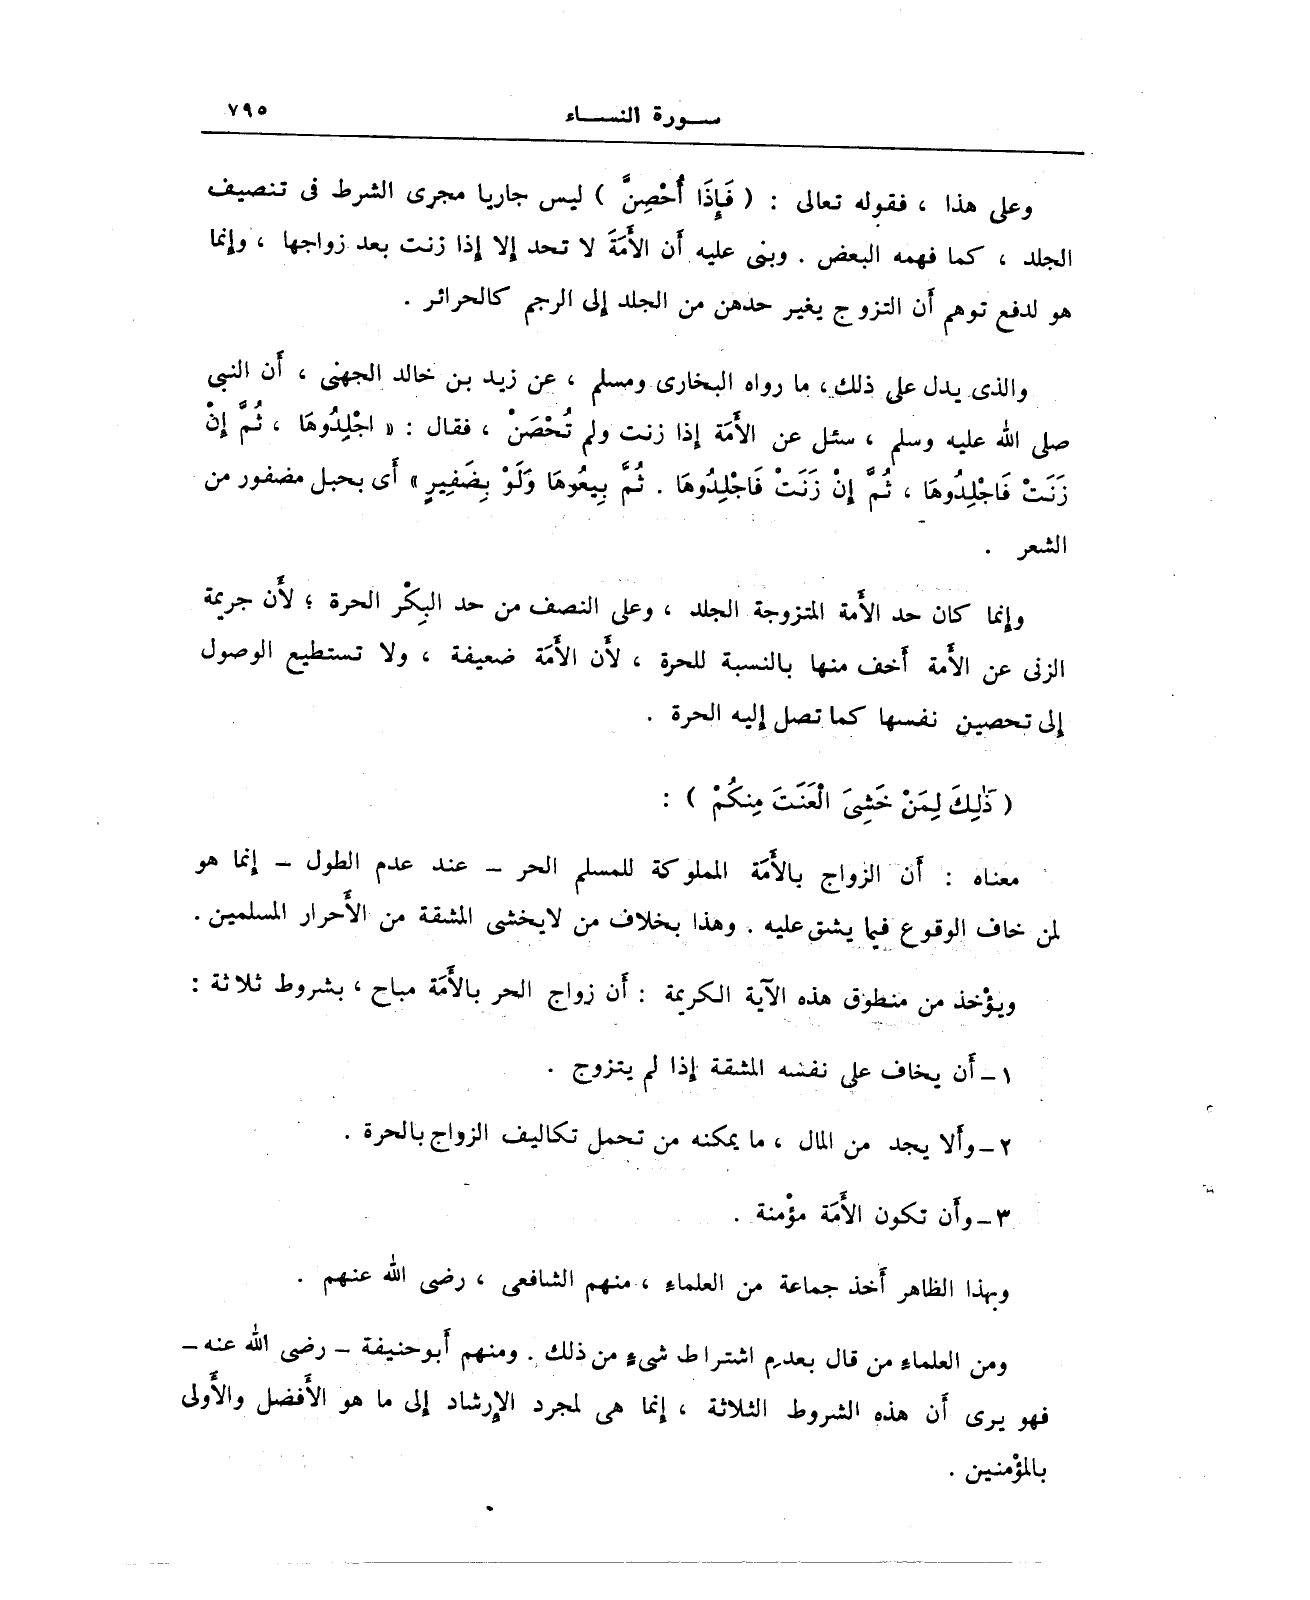 سـورة النسـاء ٧٩٥
وعلى هذا ، فقوله تعالى : ( فَإِذَا أُحْصِنَّ ) ليس جاريا مجرى الشرط فى تنصيف
الجلد ، كما فهمه البعض . وبنى عليه أن الأَمَةَ لا تحد إلا إذا زنت بعد زواجها ، وإنما
هو لدفع توهم أن التزوج يغير حدهن من الجلد إلى الرجم كالحرائر .
والذى يدل على ذلك ، ما رواه البخارى ومسلم ، عن زيد بن خالد الجهنى ، أن النبى
صلى الله عليه وسلم ، سئل عن الأَمَة إذا زنت ولم تُحْصَنْ ، فقال : « اجْلِدُوهَا ، ثُمَّ إِنْ
زَنَتْ فَاجْلِدُوهَا ، ثُمَّ إِنْ زَنَتْ فَاجْلِدُوهَا . ثُمَّ بِيعُوهَا وَلَوْ بِضَفِيرٍ » أى بحبل مضفور من
الشعر .
وإنما كان حد الأَمة المتزوجة الجلد ، وعلى النصف من حد البِكْر الحرة ؛ لأن جريمة
الزنى عن الأَمة أَخف منها بالنسبة للحرة ، لأن الأَمَة ضعيفة ، ولا تستطيع الوصول
إلى تحصين نفسها كما تصل إليه الحرة .
( ذَٰلِكَ لِمَنْ خَشِىَ الْعَنَتَ مِنكُمْ ) :
معناه : أَن الزواج بالأَمَة المملوكة للمسلم الحر – عند عدم الطول – إنما هو
لمن خاف الوقوع فيما يشق عليه . وهذا بخلاف من لايخشى المشقة من الأَحرار المسلمين .
ويؤْخذ من منطوق هذه الآية الكريمة : أَن زواج الحر بالأَمَة مباح ، بشروط ثلاثة :
١ – أَن يخاف على نفسه المشقة إذا لم يتزوج .
٢ – وأَلا يجد من المال ، ما يمكنه من تحمل تكاليف الزواج بالحرة .
٣ – وأَن تكون الأَمَة مؤْمنة .
وبهذا الظاهر أَخذ جماعة من العلماء ، منهم الشافعى ، رضى الله عنهم .
ومن العلماء من قال بعدم اشتراط شىءٍ من ذلك . ومنهم أَبو حنيفة – رضى الله عنه –
فهو يرى أَن هذه الشروط الثلاثة ، إنما هى لمجرد الإِرشاد إلى ما هو الأَفضل والأَولى
بالمؤْمنين .